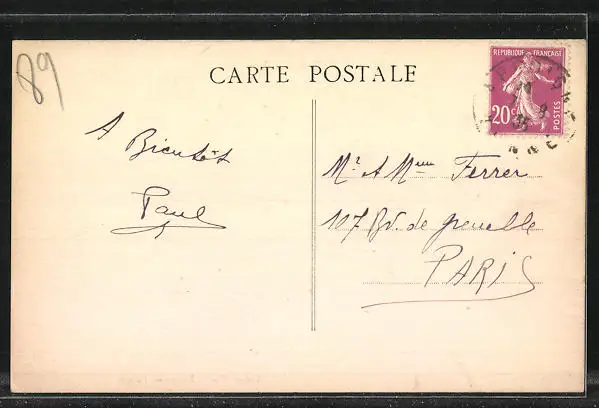 89
CARTE POSTALE
REPUBLIQUE FRANÇAISE
20 c
POSTES
A Bientôt
Paul
Mr et Mme Ferrer
107 Bd. de Grenelle
PARIS